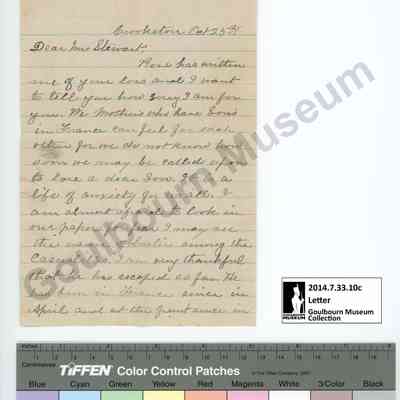 Crookston Oct 25th
Dear Mrs Stewart,
Rose has written
me of your loss and I want
to tell you how sorry I am for
you. We Mothers who have Sons
in France can feel for each
other for we do not know how
soon we may be called upon
to lose a dear Son. It is a
life of anxiety for us all. I
am almost afraid to look in
our paper for fear I may see
the name among the
I am very thankful
that he has escaped so far. He
has been in France since in
April and at the present is in
Goulbourn Museum
2014.7.33.10c
Letter
Goulbourn Museum
Collection
GOULBOURN
MUSEUM
Inches
Centimetres
TIFFEN Color Control Patches
Blue Cyan Green Yellow Red Magenta White 3/Color Black